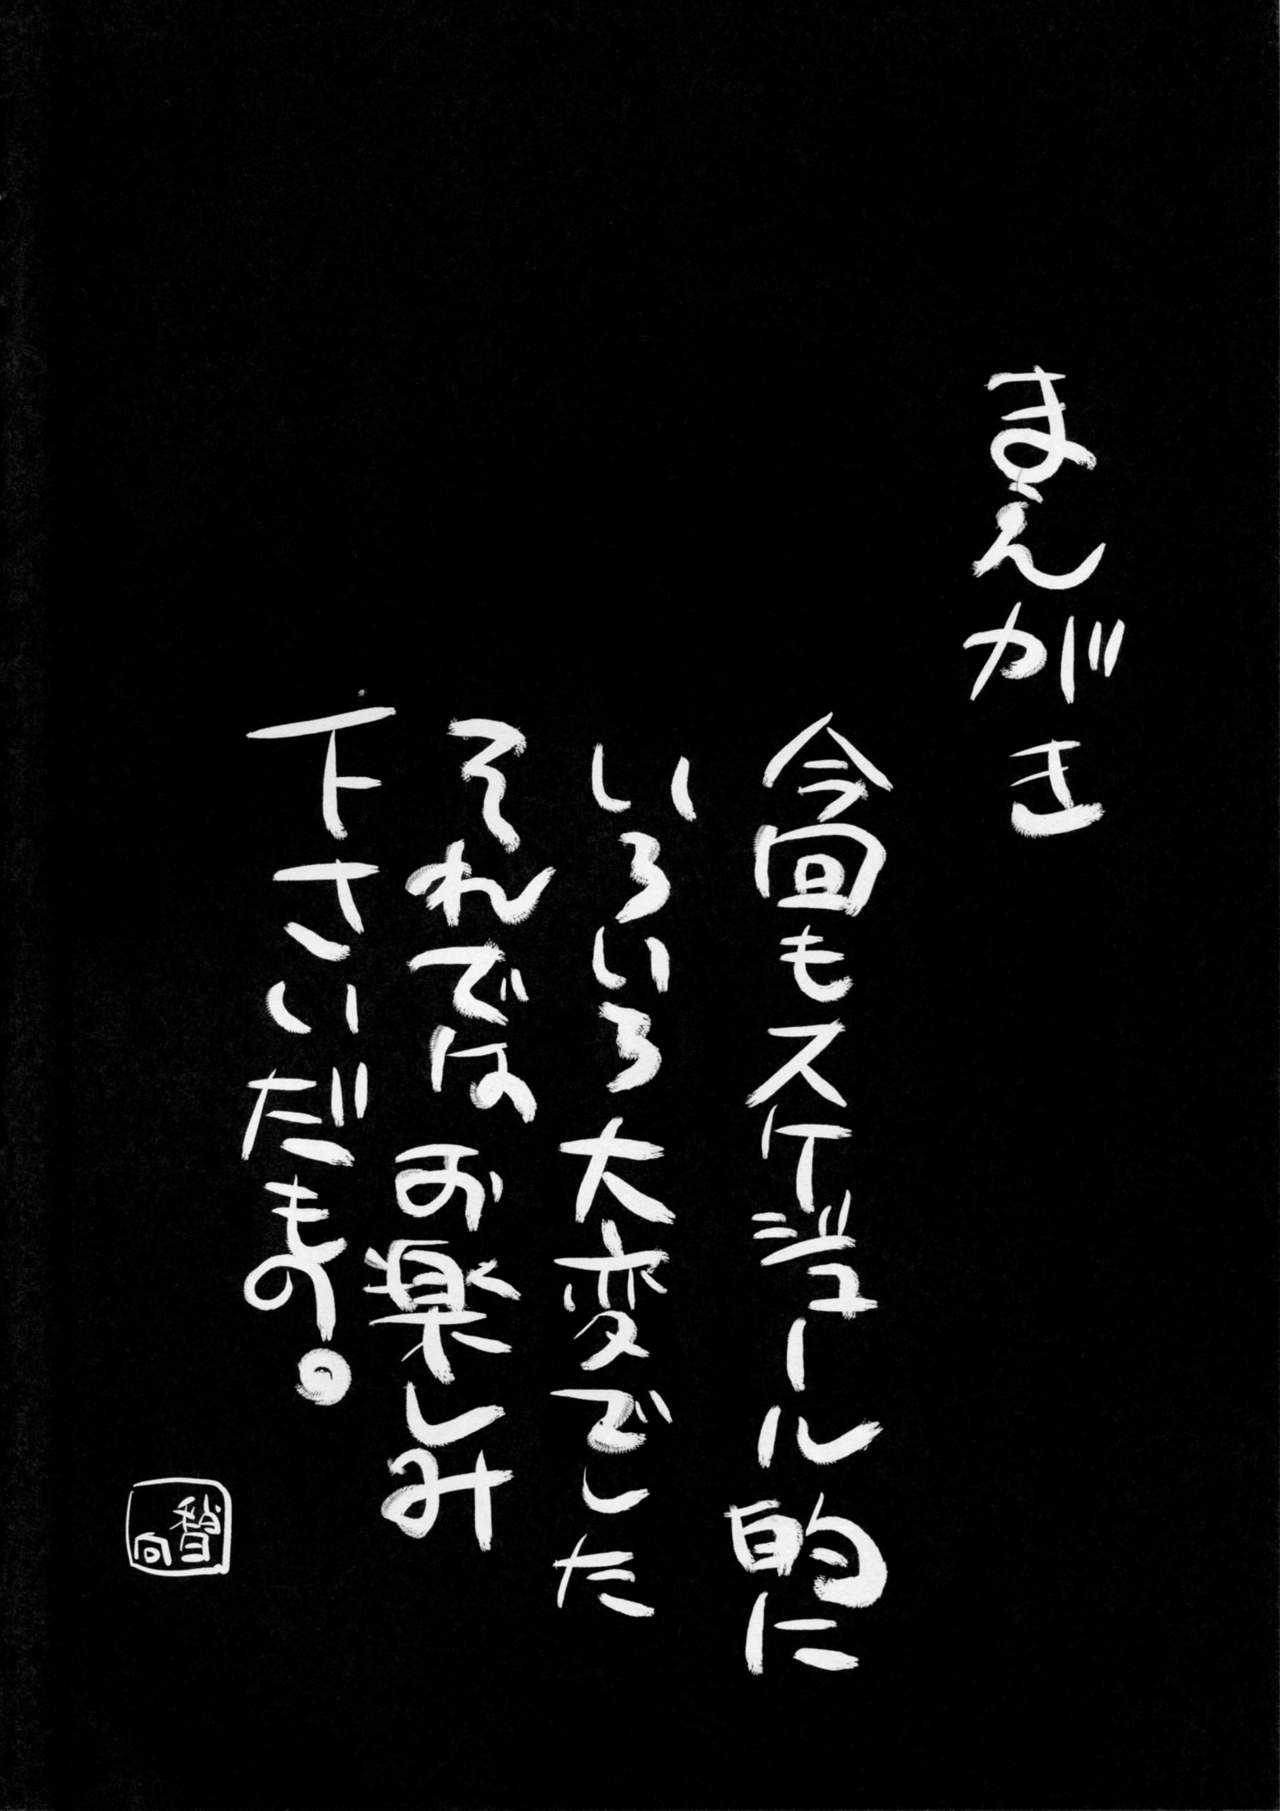 まえがき
今回もスケジュール的に
いろいろ大変でした
それではお楽しみ
下さいだもの。